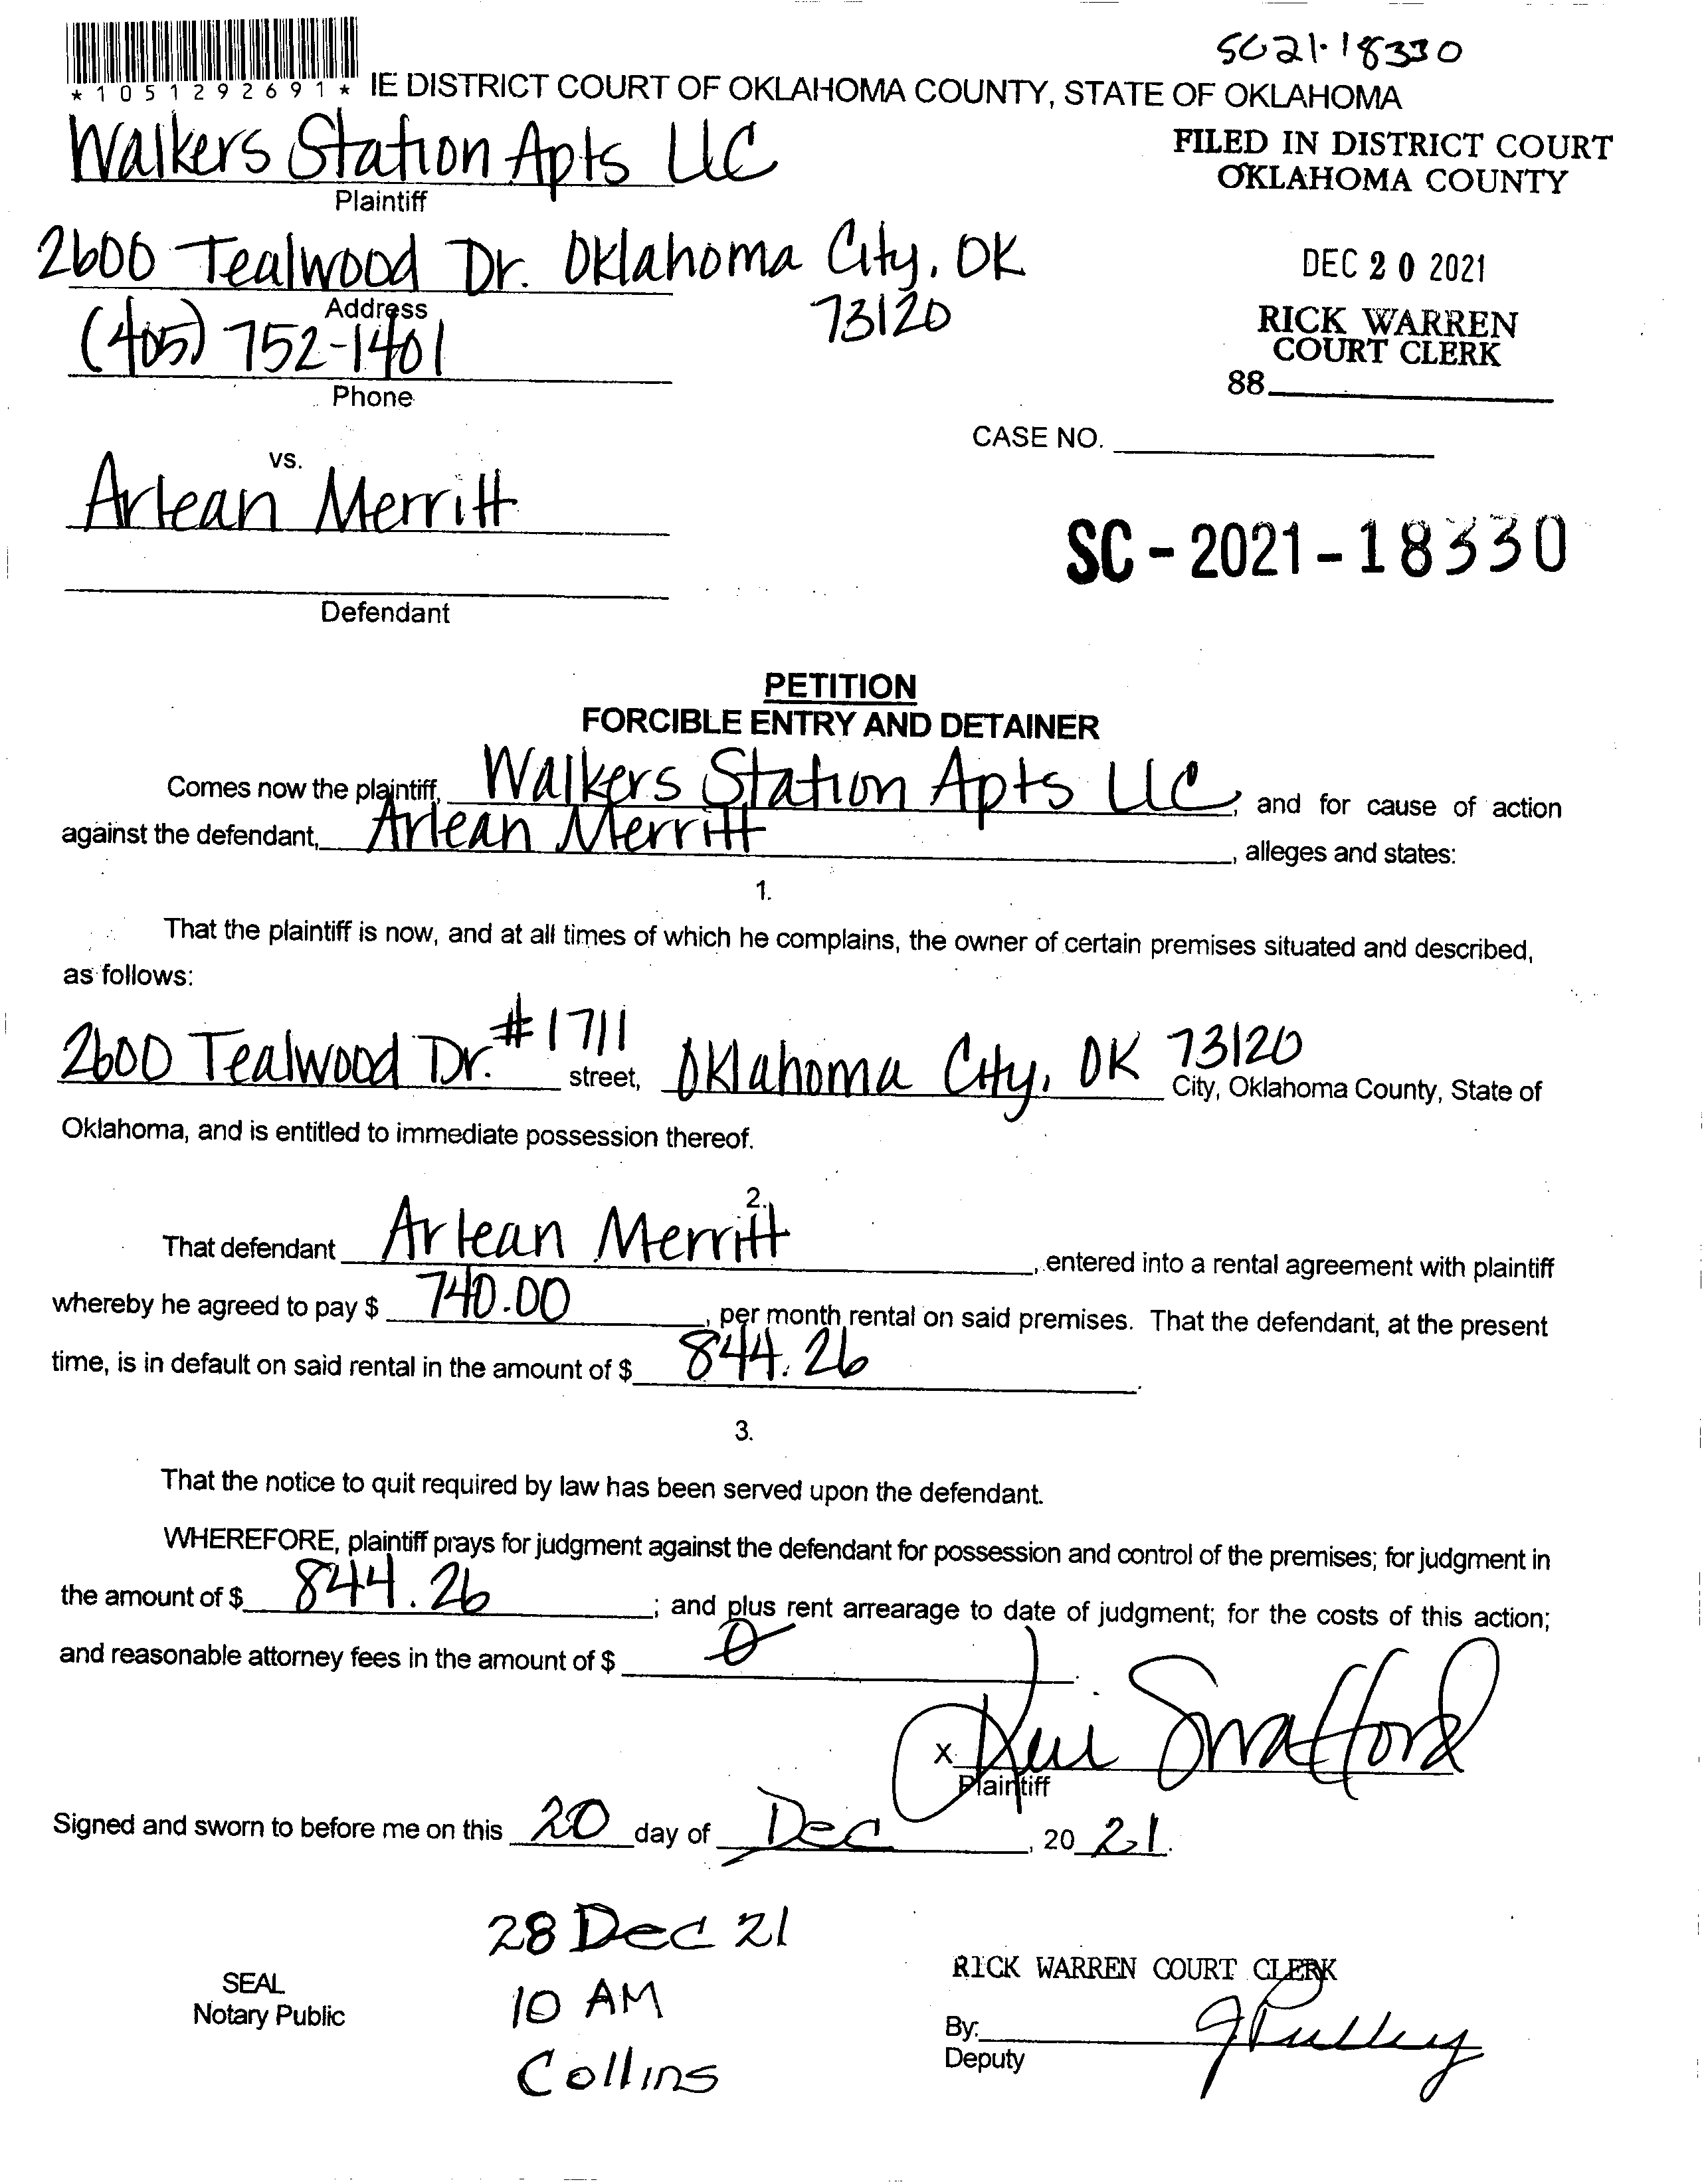 SC21-18330
*1051292691* IE DISTRICT COURT OF OKLAHOMA COUNTY, STATE OF OKLAHOMA
Walkers Station Apts LLC
Plaintiff
FILED IN DISTRICT COURT
OKLAHOMA COUNTY
2600 Tealwood Dr. Oklahoma City, OK
73120
Address
DEC 20 2021
(405) 752-1401
Phone
RICK WARREN
COURT CLERK
88
CASE NO.
vs.
Arlean Merritt
SC-2021-18330
Defendant
PETITION
FORCIBLE ENTRY AND DETAINER
Comes now the plaintiff, Walkers Station Apts LLC, and for cause of action
against the defendant, Arlean Merritt, alleges and states:
1.
That the plaintiff is now, and at all times of which he complains, the owner of certain premises situated and described,
as follows:
2600 Tealwood Dr. #1711 street, Oklahoma City, OK 73120 City, Oklahoma County, State of
Oklahoma, and is entitled to immediate possession thereof.
2.
That defendant Arlean Merritt, entered into a rental agreement with plaintiff
whereby he agreed to pay $ 740.00, per month rental on said premises. That the defendant, at the present
time, is in default on said rental in the amount of $ 844.26.
3.
That the notice to quit required by law has been served upon the defendant.
WHEREFORE, plaintiff prays for judgment against the defendant for possession and control of the premises; for judgment in
the amount of $ 844.26; and plus rent arrearage to date of judgment; for the costs of this action;
and reasonable attorney fees in the amount of $ 0.
x Swafford
Plaintiff
Signed and sworn to before me on this 20 day of Dec, 2021.
28 Dec 21
10 AM
Collins
SEAL
Notary Public
RICK WARREN COURT CLERK
By: J Pulley
Deputy